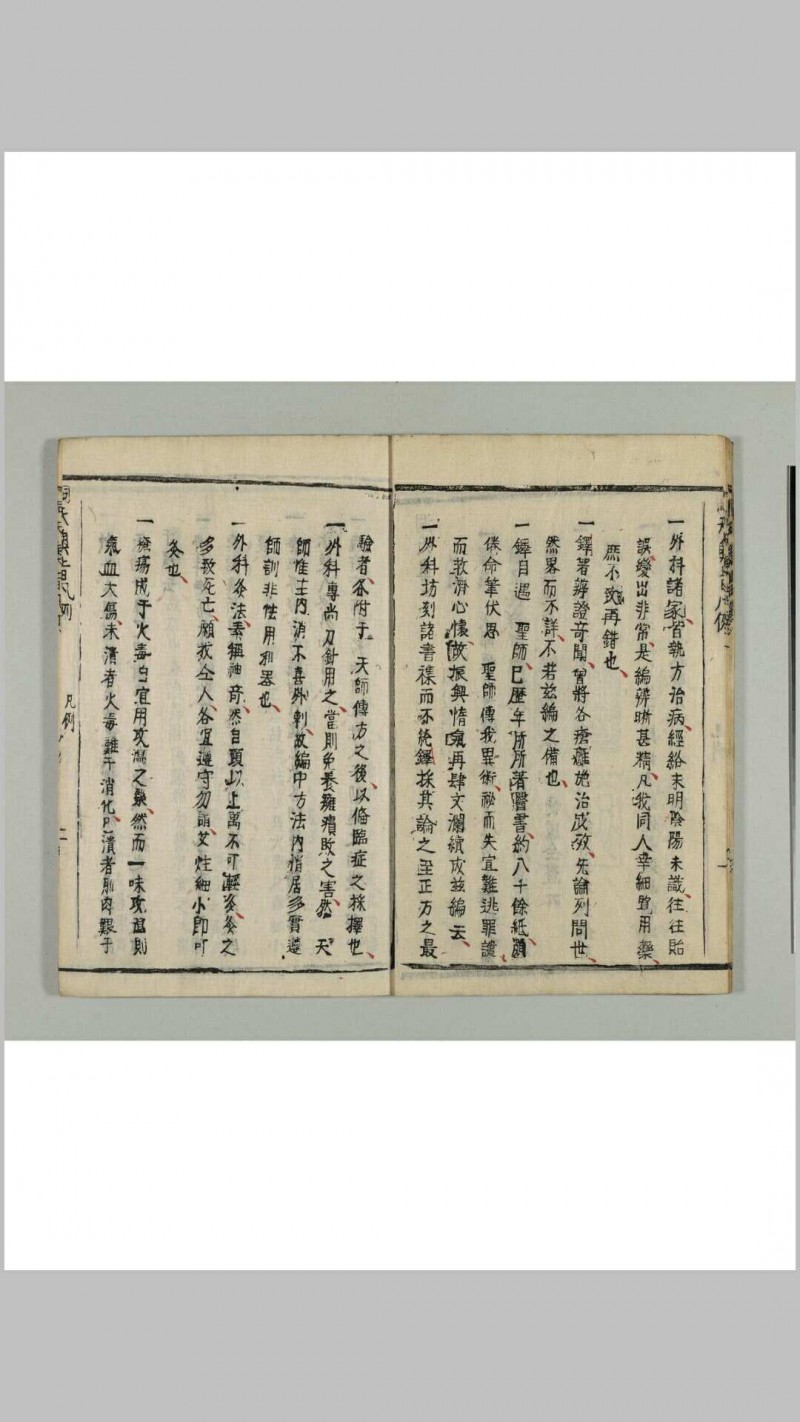 一外科諸家皆執方治病經絡未明陰陽未識往往貽
誤變出非常是編辨晰甚精凡我同人幸細覽用藥
庶不致再錯也
一鐸著辨證奇聞曾將各瘡瘍施治成效先論列問世
然畧而不詳不若茲編之備也
一鐸自遇 聖師已歷年所所著醫書約八十餘紙
命筆伏思 聖師傳我異術祕而失宜難逃罪譴
而救濟心懷故振興情再肆文瀾續成茲編云
一外科坊刻諸書襍而不純鐸採其論之至正方之最
驗者各附于 天師傳方之後以俻臨症之採擇也
一外科專尚刀針用之當則免養癰潰敗之害然 天
師惟主內消不喜外刺故編中方法內消居多實遵
師訓非怯用利器也
一外科灸法素稱神奇然自頭以上萬不可輕灸灸之
多致死亡願我仝人各宜遵守勿謂艾炷細小即可
灸也
一瘡瘍成于火毒自宜用攻瀉之藥然而一味攻瀉則
氣血大傷未潰者火毒難于消化已潰者肌肉艱于
凡例
二